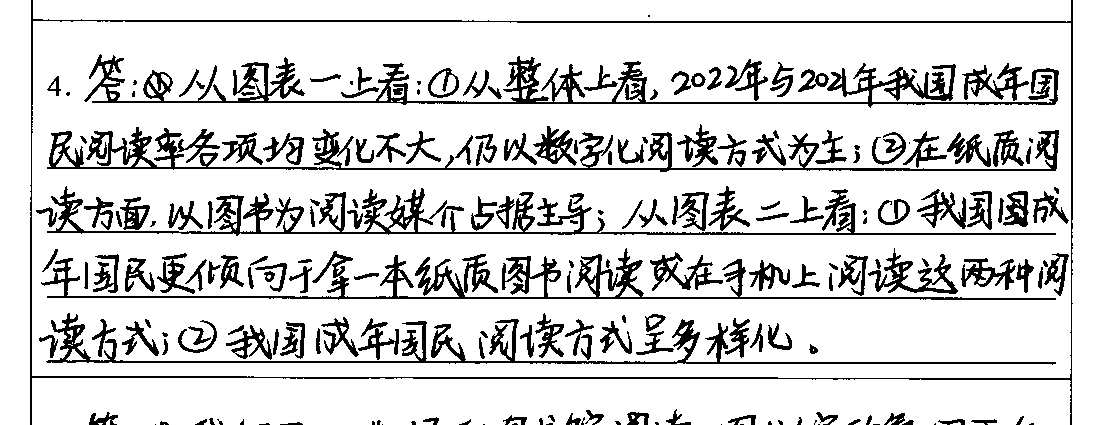 4. 答:从图表一上看:①从整体上看,2022年与2021年我国成年国
民阅读率各项均变化不大,仍以数字化阅读方式为主;②在纸质阅
读方面,以图书为阅读媒介占据主导;从图表二上看:①我国国成
年国民更倾向于拿一本纸质图书阅读或在手机上阅读这两种阅
读方式;②我国成年国民阅读方式呈多样化。